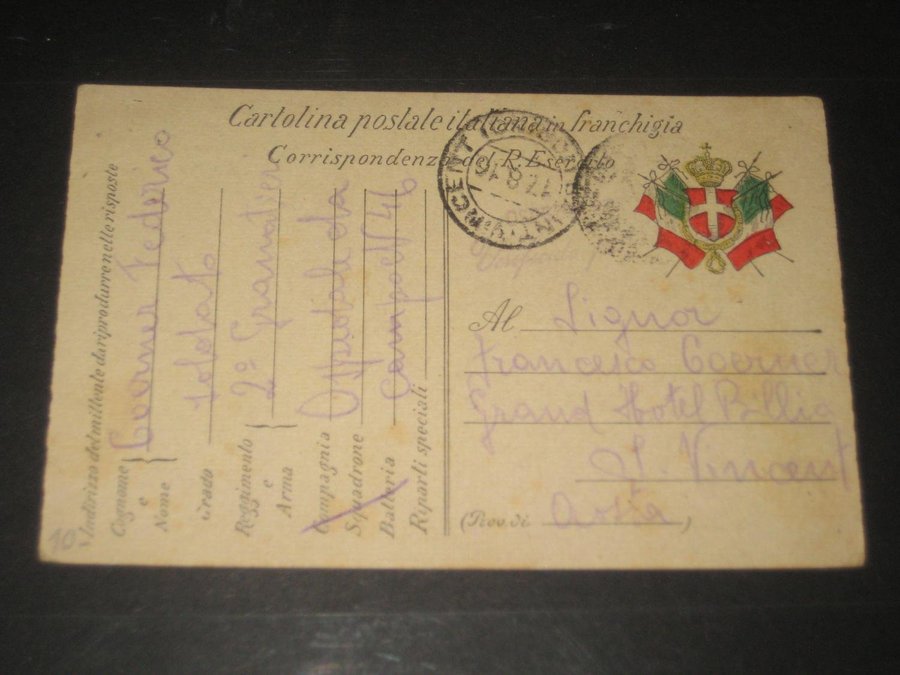 Cartolina postale italiana in franchigia
Corrispondenza del R. Esercito
Indirizzo del mittente da riprodurre nelle risposte
Cognome e Nome Goerner Federico
Grado soldato
Reggimento e Arma 2º Granatieri
Compagnia Squadrone Ospedale da
Batteria campo Nº 46
Riparti speciali
ST. VINCENT
17 8 16
Verificato
Al Signor
Francesco Goerner
Grand Hotel Billia
St. Vincent
(Prov. di Aosta)
10